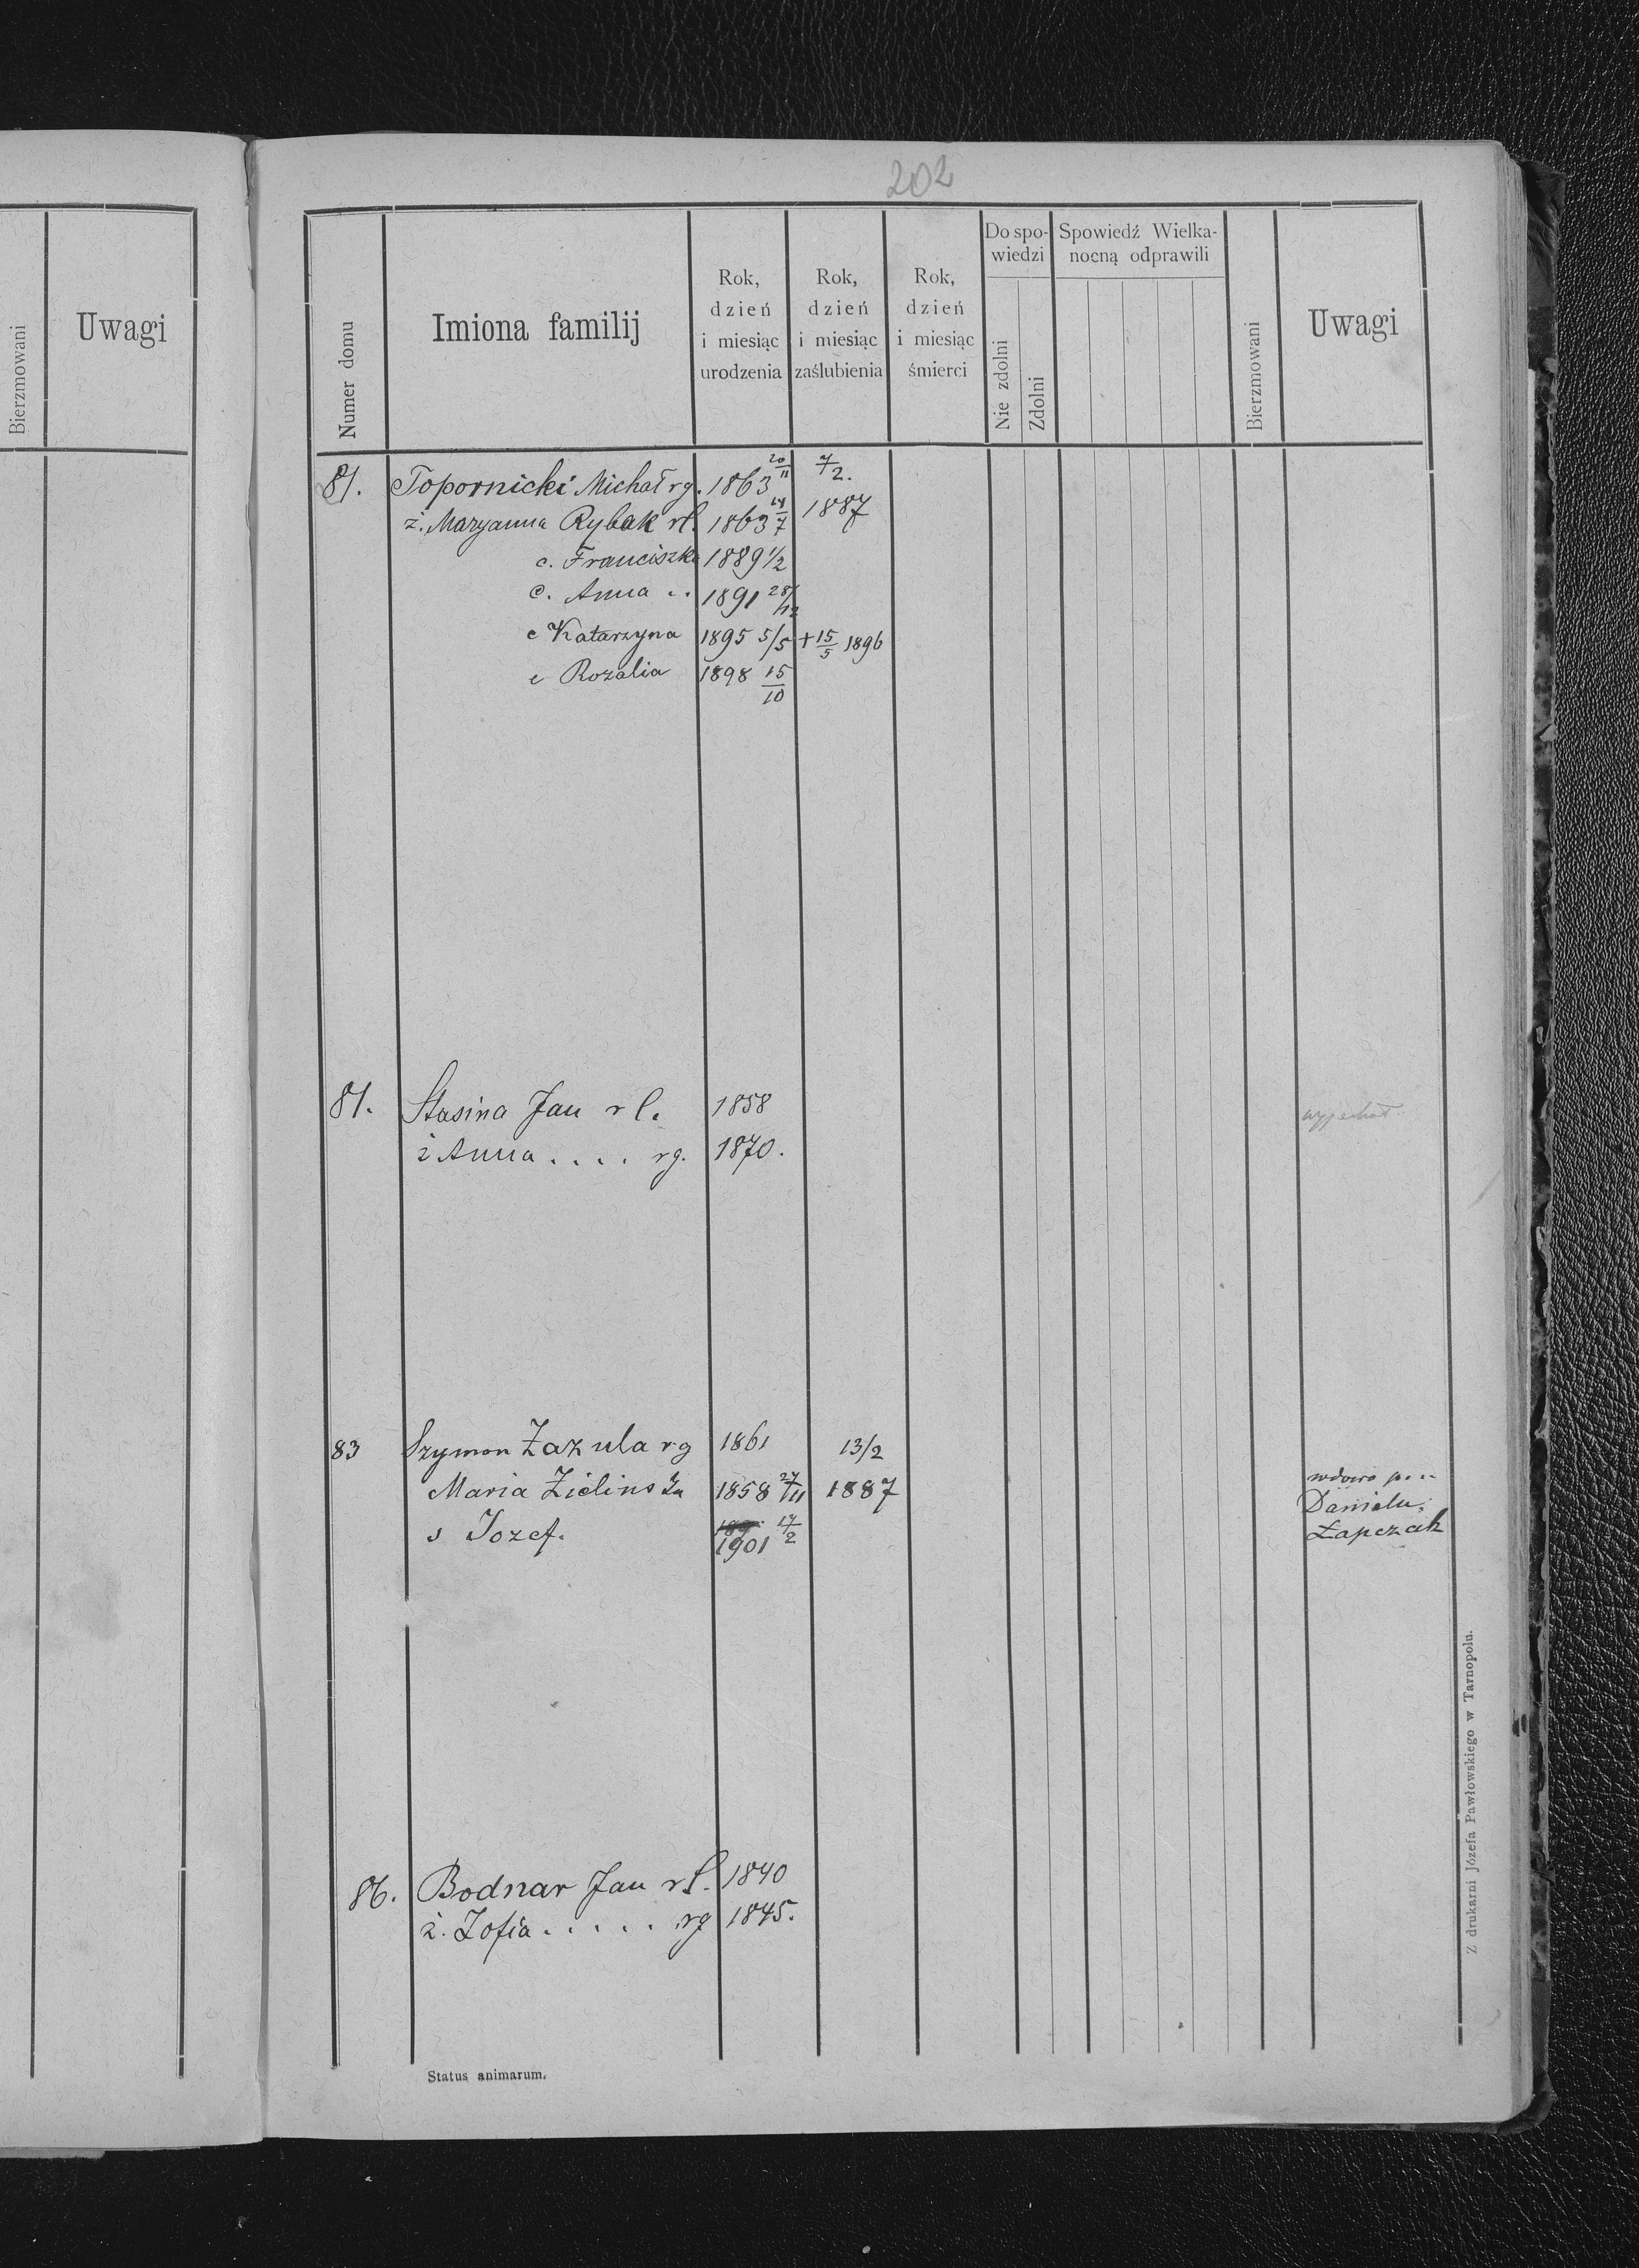 202
Bierzmowani
Uwagi
Numer domu
Imiona familij
Rok,
dzień
i miesiąc
urodzenia
Rok,
dzień
i miesiąc
zaślubienia
Rok,
dzień
i miesiąc
śmierci
Do spo-
wiedzi
Nie zdolni
Zdolni
Spowiedź Wielka-
nocną odprawili
Bierzmowani
Uwagi
81. Topornicki Michał rg. 1863 20/11 7/2.
ż. Maryanna Rybak rł. 1863 14/7 1887
c. Franciszka 1889 1/2
c. Anna .. 1891 28/12
c Katarzyna 1895 5/5 + 15/5 1896
c Rozalia 1898 15/10
81. Stasina Jan rl. 1858 wyjechał
ż Anna . . . . rg. 1870.
83 Szymon Zazula rg 1861 13/2
Maria Zielinska 1858 27/11 1887 wdowa po
s Jozef. 1901 17/2 Danielu
Łapczak
86. Bodnar Jan rł. 1840
ż. Zofia . . . . . rg 1845.
Status animarum.
Z drukarni Józefa Pawłowskiego w Tarnopolu.